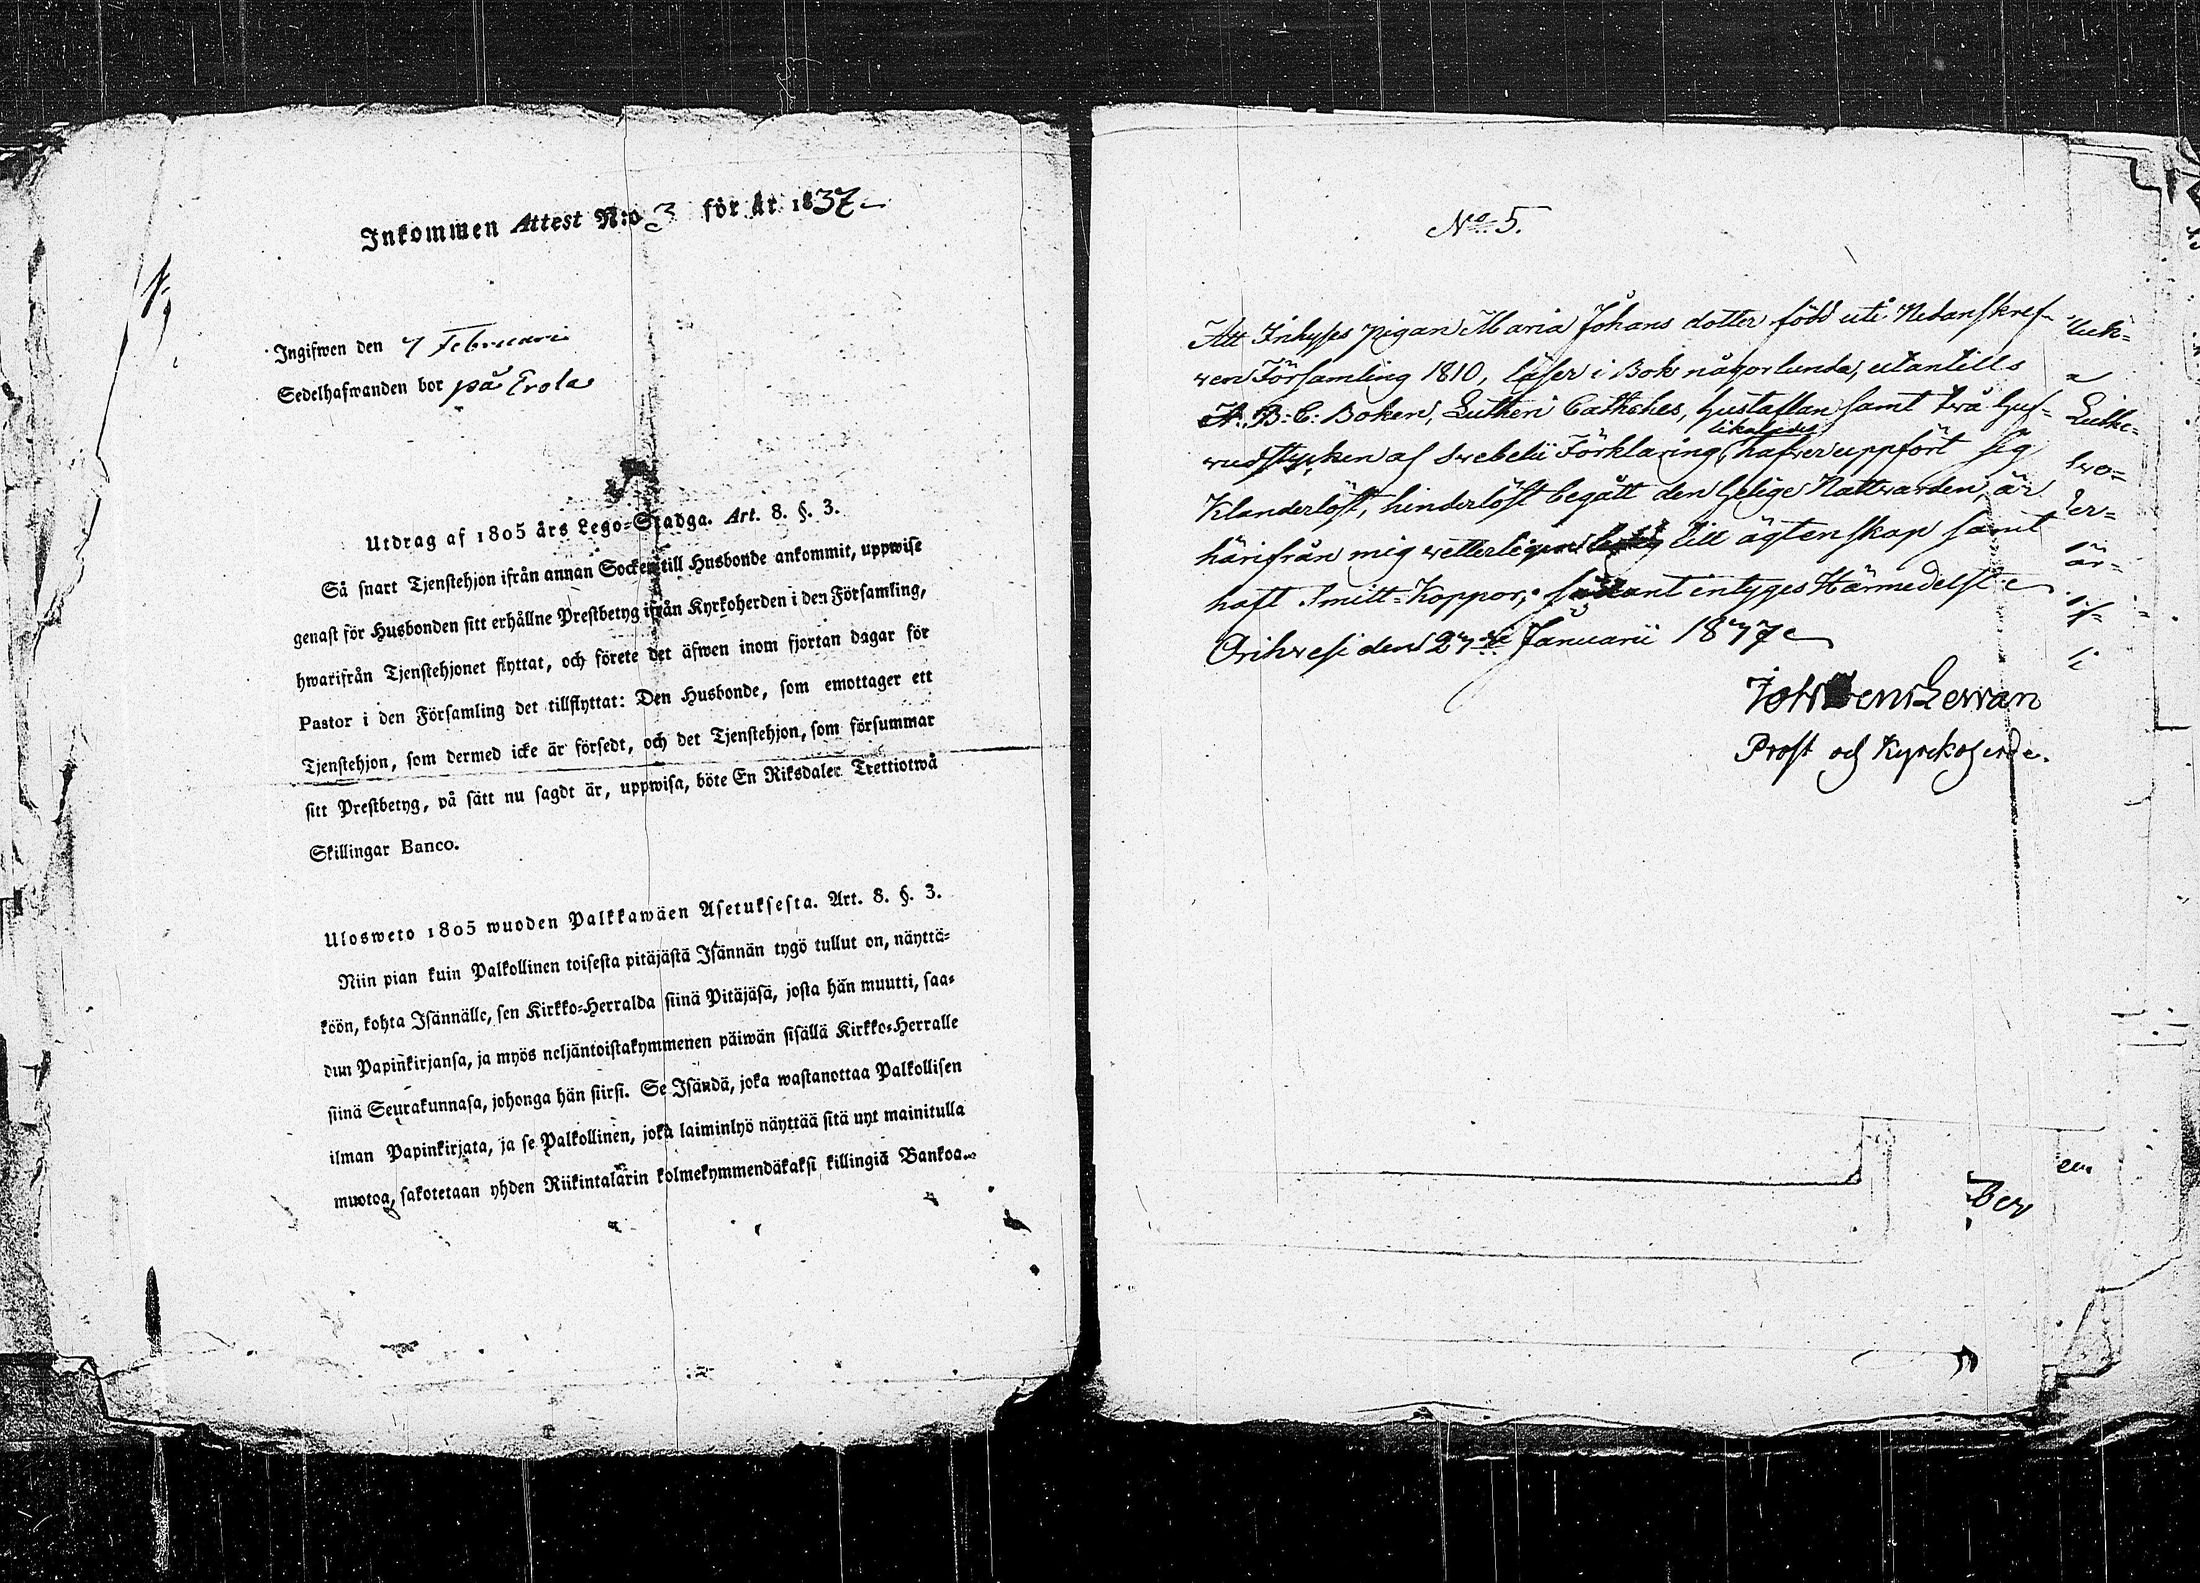 Inkommen Attest N:o 3 för år 1837
Ingifwen den 7 Februari
Sedelhafwanden bor på Erola
Utdrag af 1805 års Lego=Stadga. Art. 8. §. 3.
Så snart Tjenstehjon ifrån annan Socken till Husbonde ankommit, uppwise
genast för Husbonden sitt erhållne Prestbetyg ifrån Kyrkoherden i den Församling,
hwarifrån Tjenstehjonet flyttat, och förete det äfwen inom fjortan dagar för
Pastor i den Församling det tillflyttat: Den Husbonde, som emottager ett
Tjenstehjon, som dermed icke är försedt, och det Tjenstehjon, som försummar
sitt Prestbetyg, på sätt nu sagdt är, uppwisa, böte En Riksdaler Trettiotwå
Skillingar Banco.
Ulosweto 1805 wuoden Palkkawäen Asetuksesta. Art. 8. §. 3.
Niin pian kuin Palkollinen toisesta pitäjästä Isännän tygö tullut on, näyttä=
köön, kohta Isännälle, sen Kirkko=Herralda siinä Pitäjäsä, josta hän muutti, saa=
dun Papinkirjansa, ja myös neljäntoistakymmenen päiwän sisällä Kirkko=Herralle
siinä Seurakunnasa, johonga hän siirsi. Se Isändä, joka wastanottaa Palkollisen
ilman Papinkirjata, ja se Palkollinen, joka laiminlyö näyttää sitä nyt mainitulla
muotoa, sakotetaan yhden Riikintalarin kolmekymmendäkaksi killingiä Bankoa.
No 5.
Att Inhyses pigan Maria Johans dotter född uti Nedanskref-
wen Församling 1810, läser i Bok någorlunda, utantills
A. B. C. Boken, Lutheri Cathches, Hustaflan samt två huf=
likaledes
wudstycken af Swebelii Förklaring, hafwer uppfört sig
Klanderlöst, hinderlöst begått den Helige Nattvarden, är
härifrån mig vetterligen ledig till ägtenskap samt
haft Smitt=Koppor; sådant intyges Härmedelst
Orihvesi den 27de Januarii 1837
Levan
Prost och Kyrckoherde.